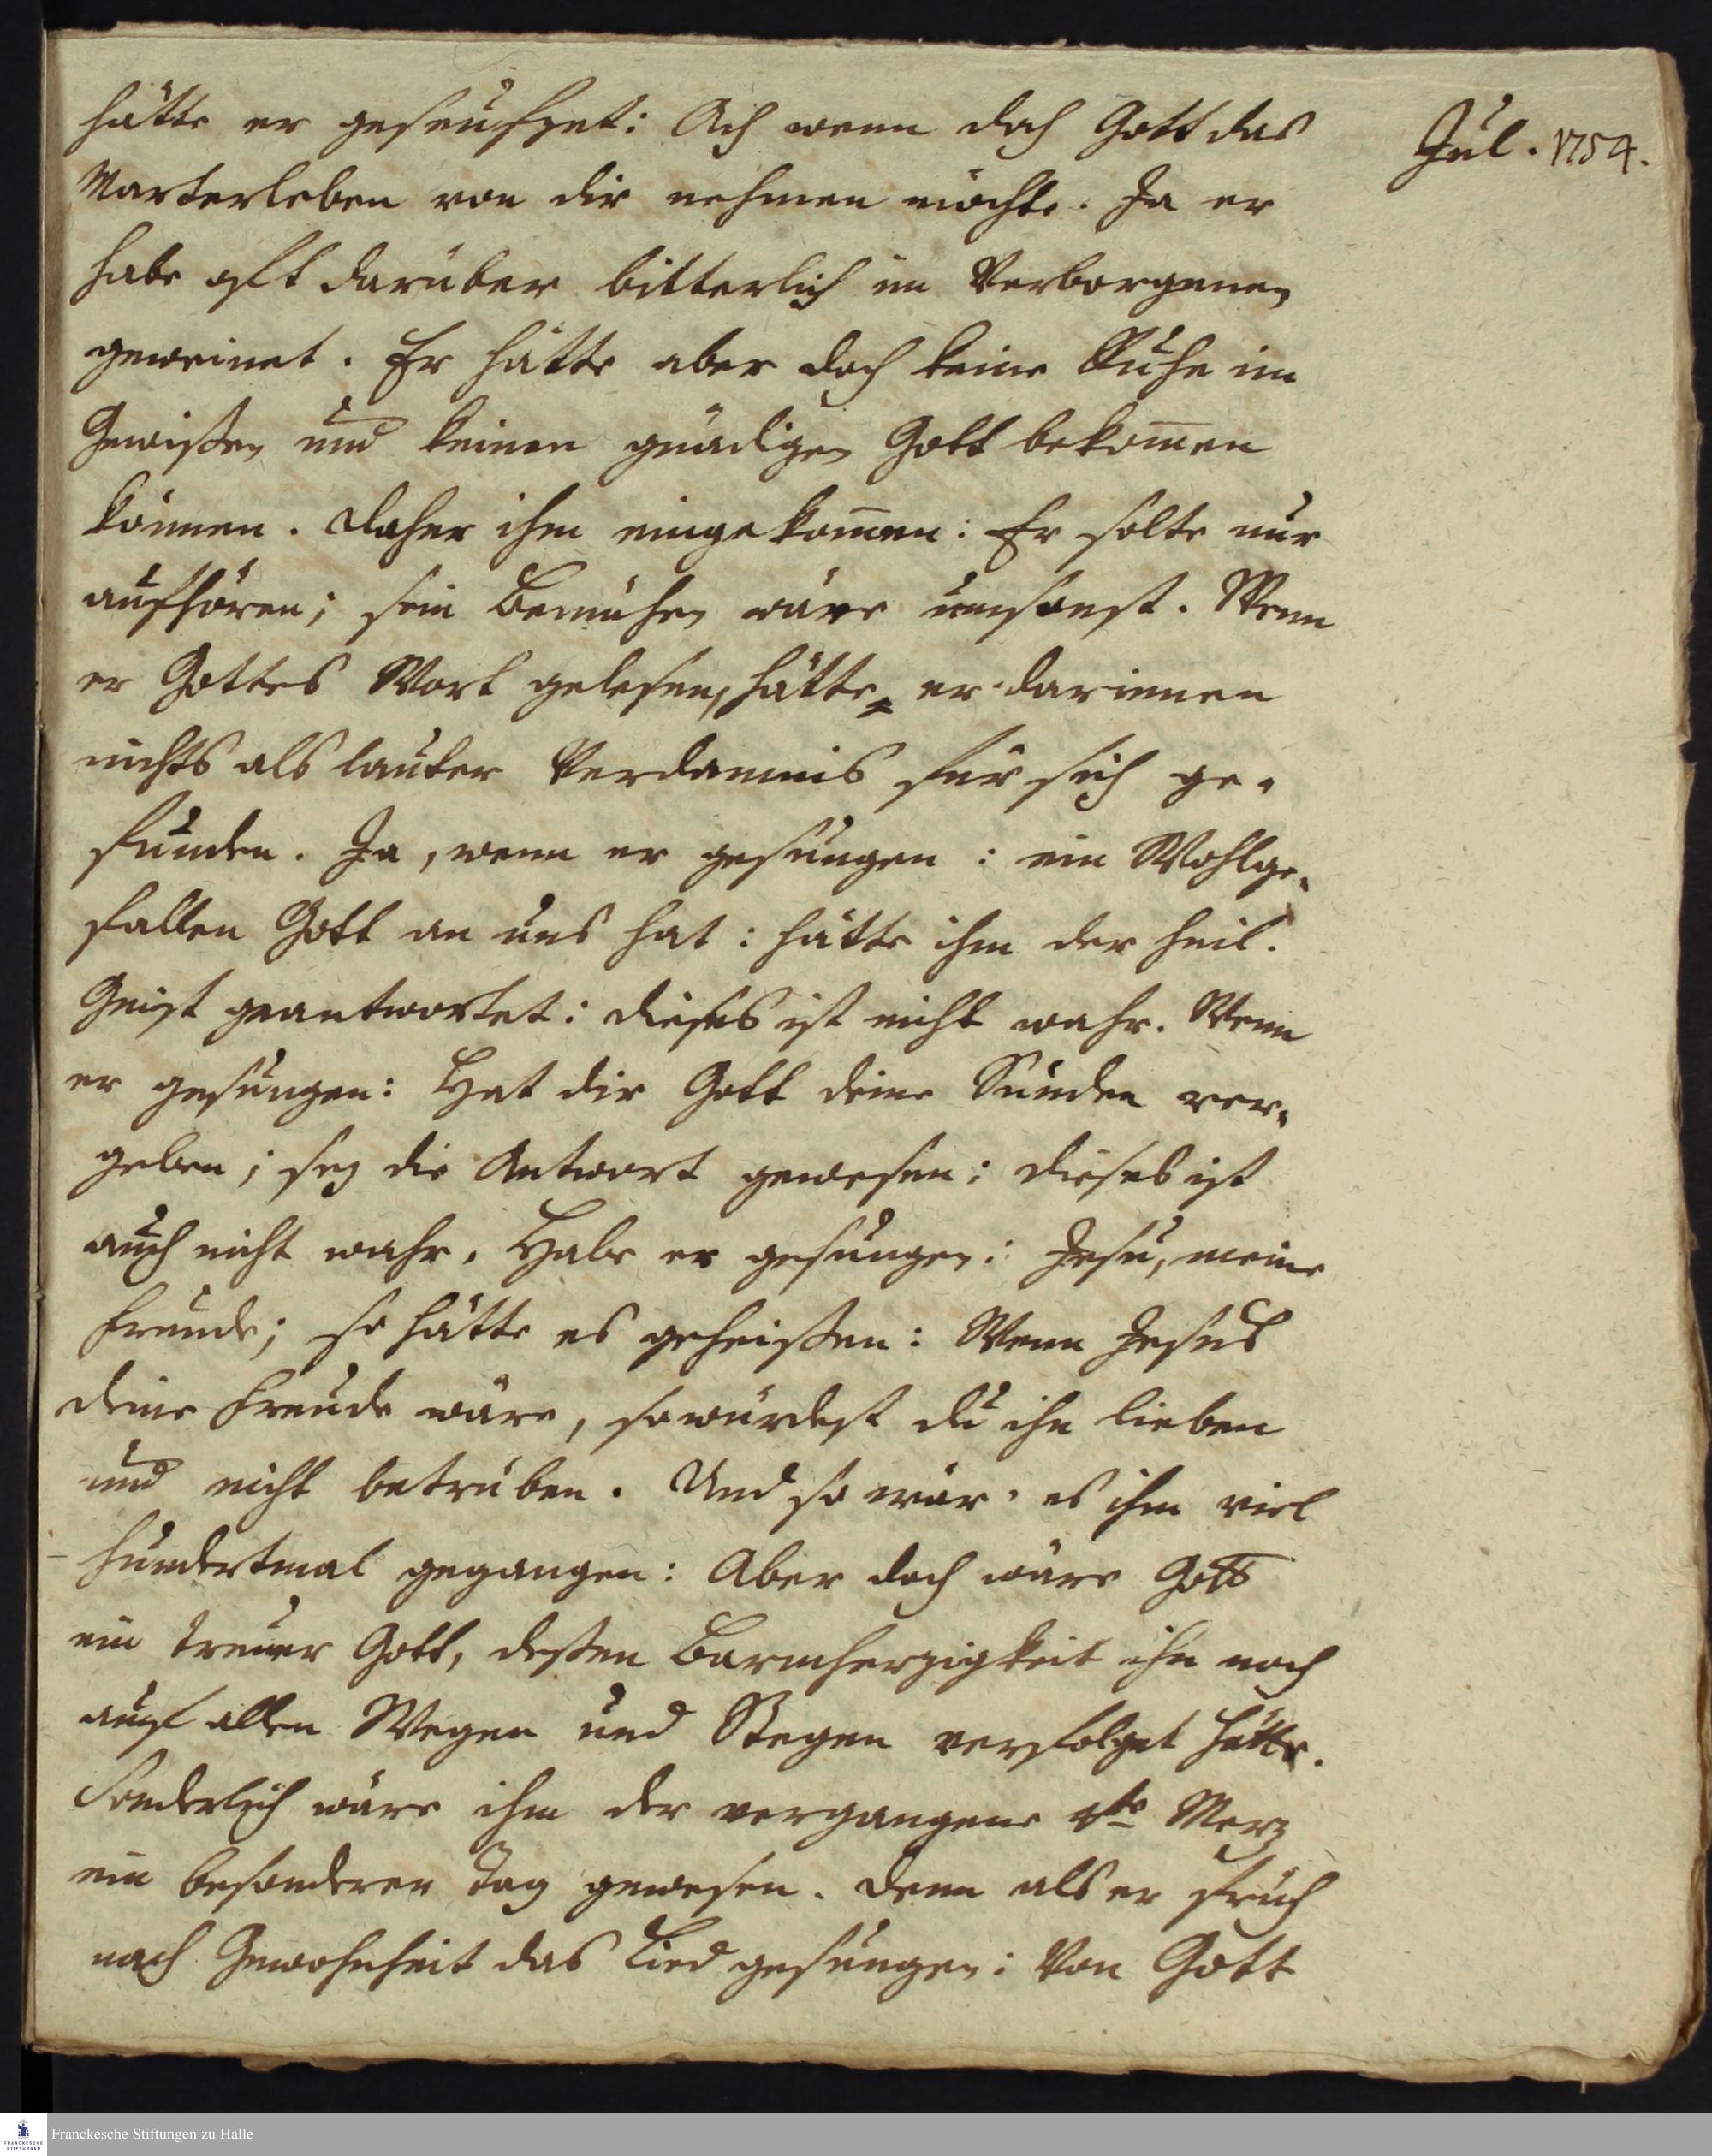 hätte er geseufzet: Ach wenn doch Gott das
Marterleben von dir nehmen möchte. Ja er
habe oft darüber bitterlich im Verborgenen
geweinet. Er hätte aber doch keine Ruhe im
Gewißen und keinen gnädigen Gott bekom̄en
können. Daher ihm eingekom̄en: Er solte nur
aufhören; sein Bemühen wäre umsonst. Wenn
er Gottes Wort gelesen, hätte er darinnen
nichts als lauter Verdamnis für sich ge-
funden. Ja, wenn er gesungen: ein Wohlge-
fallen Gott an uns hat: hätte ihm der heil.
Geist geantwortet: dieses ist nicht wahr. Wenn
er gesungen: Hat dir Gott deine Sünden ver-
geben; sey die Antwort gewesen: dieses ist
auch nicht wahr. Habe er gesungen: Jesu, meine
Freude; so hätte es geheißen: Wenn Jesus
deine Freude wäre, so würdest du ihn lieben
und nicht betrüben. Und so wär es ihm viel
hundertmal gegangen: Aber doch wäre Gott
ein treuer Gott, deßen Barmherzigkeit ihn noch
auf allen Wegen und Stegen verfolget hätte.
Sonderlich wäre ihm der vergangene Merz
ein besonderer Tag gewesen. Denn als er früh
nach Gewohnheit das Lied gesungen: Von Gott
Jul. 1754.
Franckesche Stiftungen zu Halle
FRANCKESCHE
STIFTUNGEN